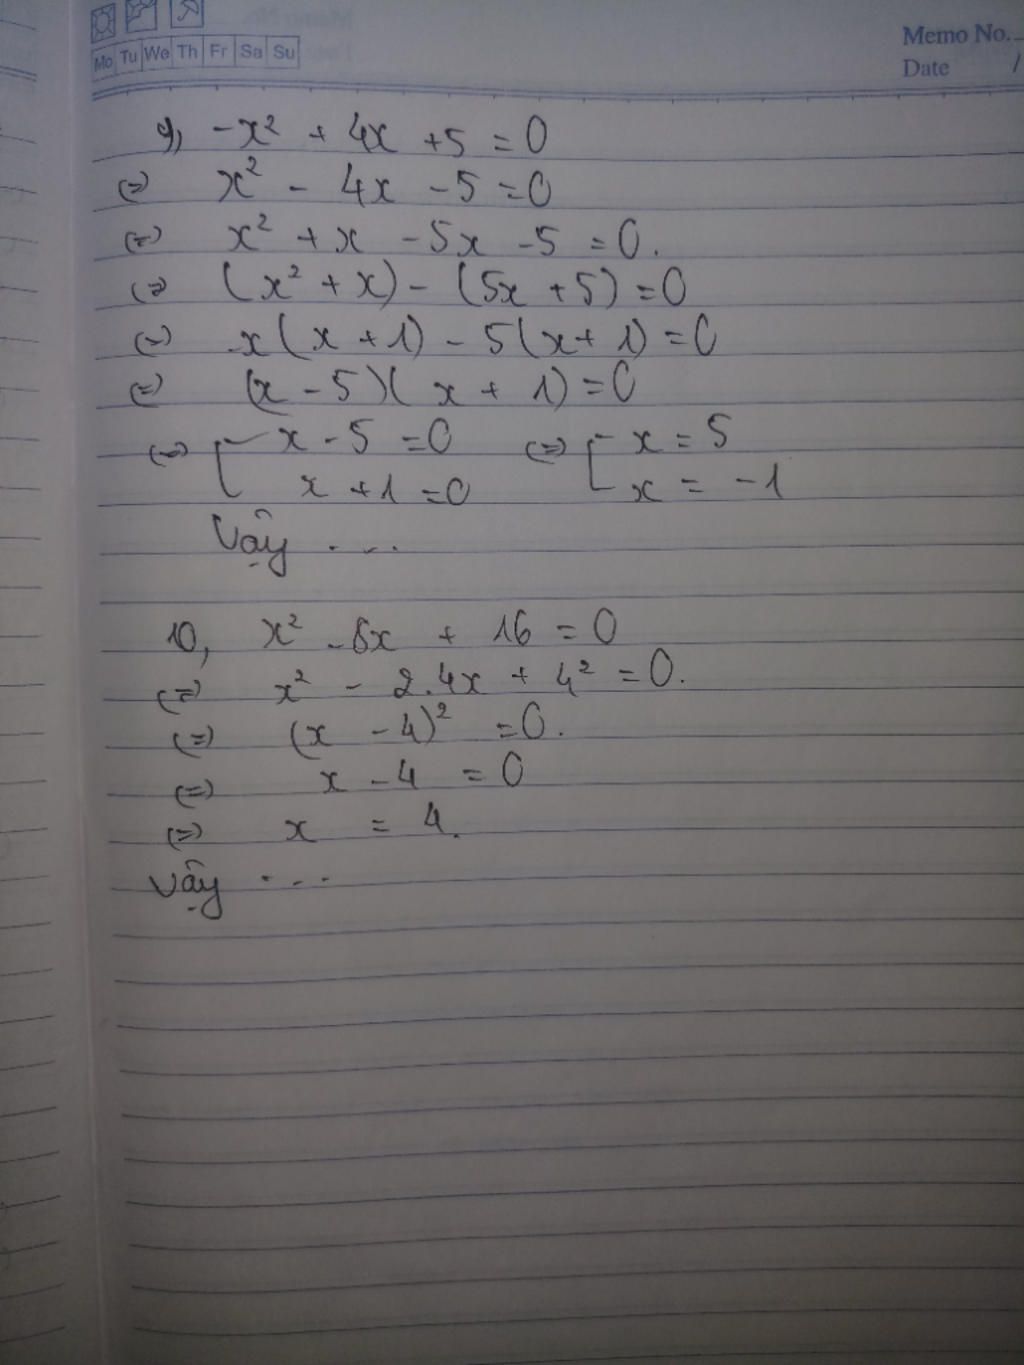 Mo Tu We Th Fr Sa Su
Memo No.
Date /
9, -x² + 4x + 5 = 0
(=) x² - 4x - 5 = 0
(=) x² + x - 5x - 5 = 0.
(=) (x² + x) - (5x + 5) = 0
(=) x(x + 1) - 5(x + 1) = 0
(=) (x - 5)(x + 1) = 0
(=) [ x - 5 = 0 (=) [ x = 5
x + 1 = 0 x = -1
Vậy ...
10, x² - 8x + 16 = 0
(=) x² - 2.4x + 4² = 0.
(=) (x - 4)² = 0.
(=) x - 4 = 0
(=) x = 4.
Vậy ...